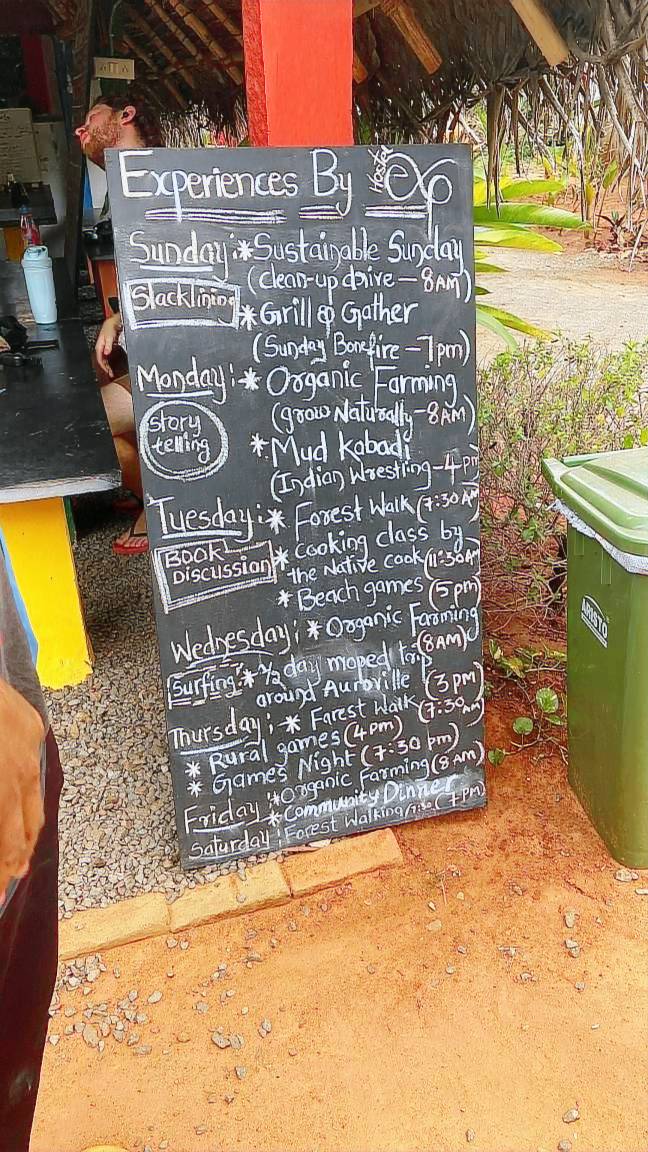 Experiences By Hostel
Sunday: * Sustainable Sunday
(clean-up drive - 8AM)
Slacklining
* Grill & Gather
(Sunday Bonefire - 7pm)
Monday: * Organic Farming
(grow Naturally - 8AM)
story
telling
* Mud Kabadi
(Indian Wresting - 4 pm
Tuesday: * Forest Walk (7:30 AM
Book
Discussion
* Cooking class by
the Native cook (11:30AM
* Beach games (5 pm)
Wednesday: * Organic Farming
(8AM)
Surfing * 1/2 day moped trip
around Auroville (3pm)
Thursday: * Forest Walk (7:30 AM
* Rural games (4pm)
* Games Night (7:30 pm)
Friday: * Organic Farming (8AM)
* Community Dinner (7pm)
Saturday: Forest Walking 7:30
ARISTO